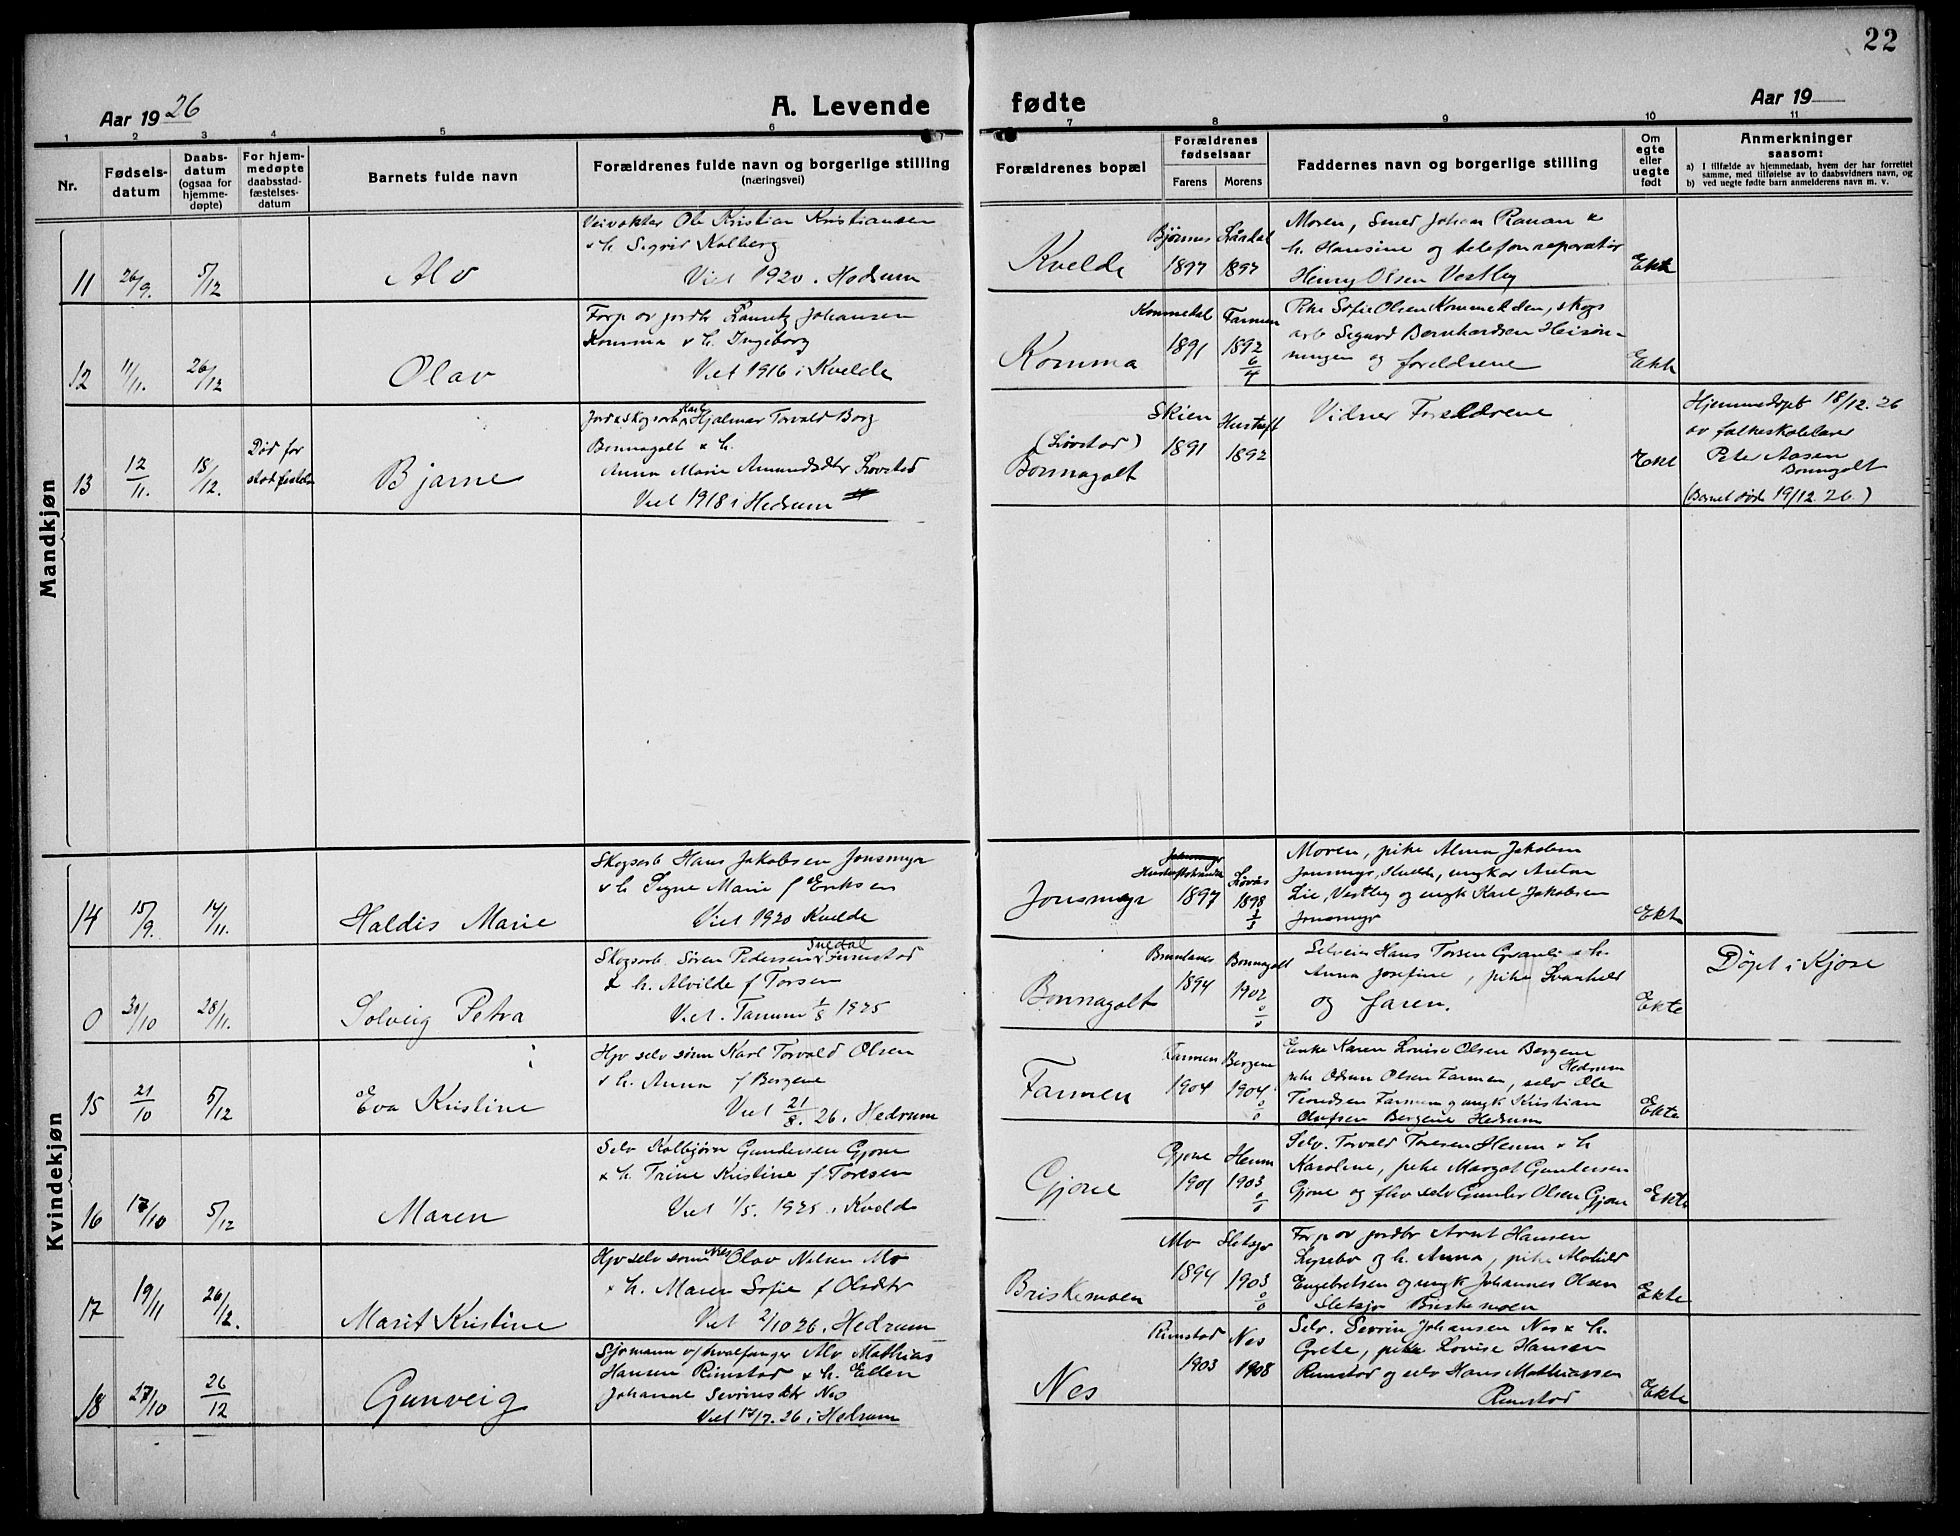 22
Aar 1926
A. Levende fødte
Aar 19
1 2 3 4 5 6 7 8 9 10 11
Nr.
Fødselsdatum
Daabsdatum (ogsaa for hjemmedøpte)
For hjemmedøpte daabsstadfæstelsesdatum
Barnets fulde navn
Forældrenes fulde navn og borgerlige stilling (næringsvei)
Forældrenes bopæl
Forældrenes fødselsaar
Farens Morens
Faddernes navn og borgerlige stilling
Om egte eller uegte født
Anmerkninger saasom:
a) I tilfælde av hjemmedaab, hvem der har forrettet samme, med tilføielse av to daabsvidners navn, og
b) ved uegte fødte barn anmelderens navn m. v.
Mandkjøn
11 26/9. 5/12 Alv
Veivokter Ole Kristian Kristiansen
& h. Sigrid Kolberg
Viet 1920. Hedrum
Kvelde
Bjørnes 1897
Lårdal 1897
Moren, Smed Johan Ranan &
h. Hansine og telefonreparatør
Henry Olsen Vestby
Ekte
12 11/11. 26/12 Olav
Forp av jordbr Lauritz Johansen
Komma & h. Ingeborg
Viet 1916 i Kvelde
Komma
Kommedal 1891
Farmen 1892 6/4
Pike Sofie Olsen Kommedalen, skogs
arb Sigurd Bernhardsen Heisøn-
ningen og foreldrene
Ekte
13 12/11. 18/12. Død før stadfestelse
Bjarne
Jord & Skogsarb Karl Hjalmar Torvald Borg
Bonnagolt & h.
Anna Marie Amundsdtr Løvstad
Viet 1918 i Hedrum
(Løvstad)
Bonnagolt
Skien 1891
Hustoft 1892
Vidner Foreldrene
Ekte
Hjemmedøpt 18/12. 26
av folkeskolelærer
Peter Aasen
Bonnagolt
(Barnet døde 19/12. 26.)
Kvindekjøn
14 15/9. 14/11. Haldis Marie
Skogsarb Hans Jakobsen Jonsmyr
& h. Signe Marie f Eriksen
Viet 1920 Kvelde
Jonsmyr
1897
Løvås 1898 3/3
Moren, pike Alma Jakobsen
Jonsmyr, Kvelde, ungkar Anton
Lie, Vestby og ungk Karl Jakobsen
Jonsmyr
Ekte
0 30/10 28/11. Solveig Petra
Skogsarb. Søren Pedersen Furustad
& h. Alvilde f Torsen
Viet. Tanum 1/8 1925
Bonnagolt
Brunlanes 1894
Bonnagolt 1902 0/0
Selveier Hans Torsen Granli & h.
Anna Josefine, pike Svanhild
og faren.
Ekte
Døpt i Kjose
15 21/10 5/12 Eva Kristine
Hjv selv sønn Karl Torvald Olsen
& h. Anna f Bergene
Viet 21/8. 26. Hedrum
Farmen
Farmen 1904
Bergene 1904 0/0
Enke Karen Lovise Olsen Bergene
Hedrum
pike Odrun Olsen Farmen, selv Ole
Farmen og ungk Kristian
Olufsen Bergene Hedrum
Ekte
16 17/10 5/12 Maren
Selv Kolbjørn Gundersen Gjone
& h. Trine Kristine f Toresen
Viet 1/5. 1925 i Kvelde
Gjone
Gjone 1901
Henm 1903 0/0
Selv. Torvald Toresen Henm & h
Karoline, pike Margot Gundersen
Gjone og fhv selv Gunder Olsen Gjone
Ekte
17 19/11 26/12. Marit Kristine
Hjv selv sønn Nils Olav Nilsen Mo
& h. Maren Sofie f Olsdtr
Viet 2/10 26. Hedrum
Briskemoen
Mo 1894
Sletsjø 1903 0/0
Forp av jordbr Arnt Hansen
Lysebo og h. Anna, pike Mathild
Engebretsen og ungk Johannes Olsen
Sletsjø Briskemoen
Ekte
18 27/10 26/12 Gunveig
Sjømann o/ hvalfanger Alv Mathias
Hansen Rimstad & h. Ellen
Johanne Severinsdtr Nes
Viet 17/7. 26 i Hedrum
Nes
Rimstad 1903
Nes 1908
Selv. Severin Johansen Nes & h.
Grete, pike Lovise Hansen
Rimstad og selv Hans Mathiassen
Rimstad
Ekte